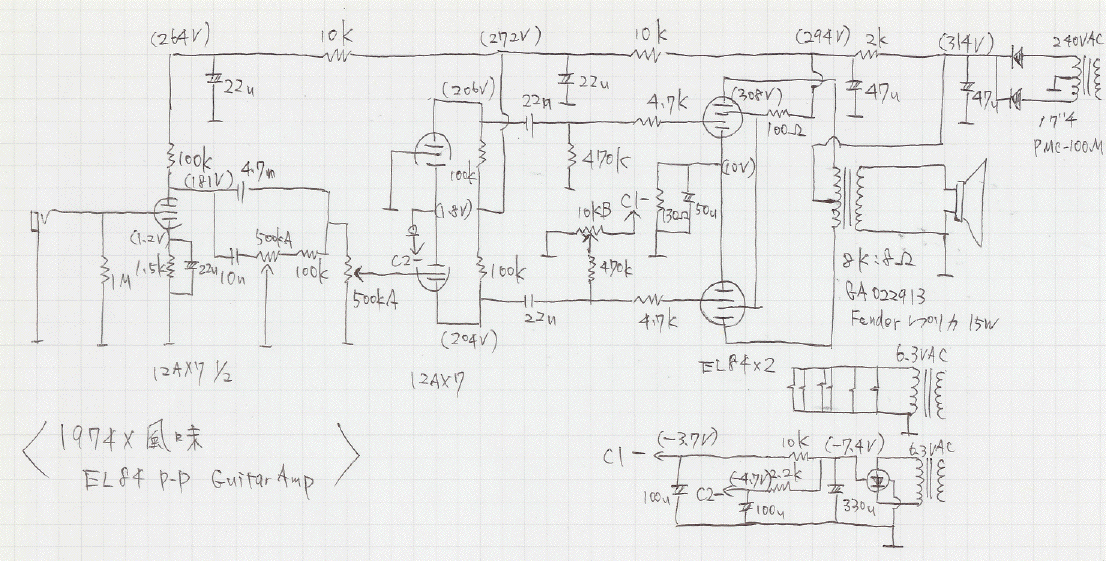 (264V)
10k
(272V)
10k
(294V)
2k
(314V)
240VAC
22u
(206V)
22n
22u
4.7k
(308V)
100Ω
47u
47u
PMC-100M
100k
4.7n
(181V)
100k
470k
C1-
(10V)
130Ω
50u
(1.8V)
10kB
(1.2V)
500kA
C2-
1M
1.5k
22u
10u
100k
500kA
100k
470k
8k:8Ω
GA022913
Fender レプリカ 15W
22u
4.7k
(204V)
12AX7 1/2
12AX7
EL84x2
6.3VAC
<1974x 風味
EL84 P-P Guitar Amp>
C1-
(-3.7V)
10k
(-7.4V)
6.3VAC
100u
C2-
(-4.7V)
2.2k
100u
330u